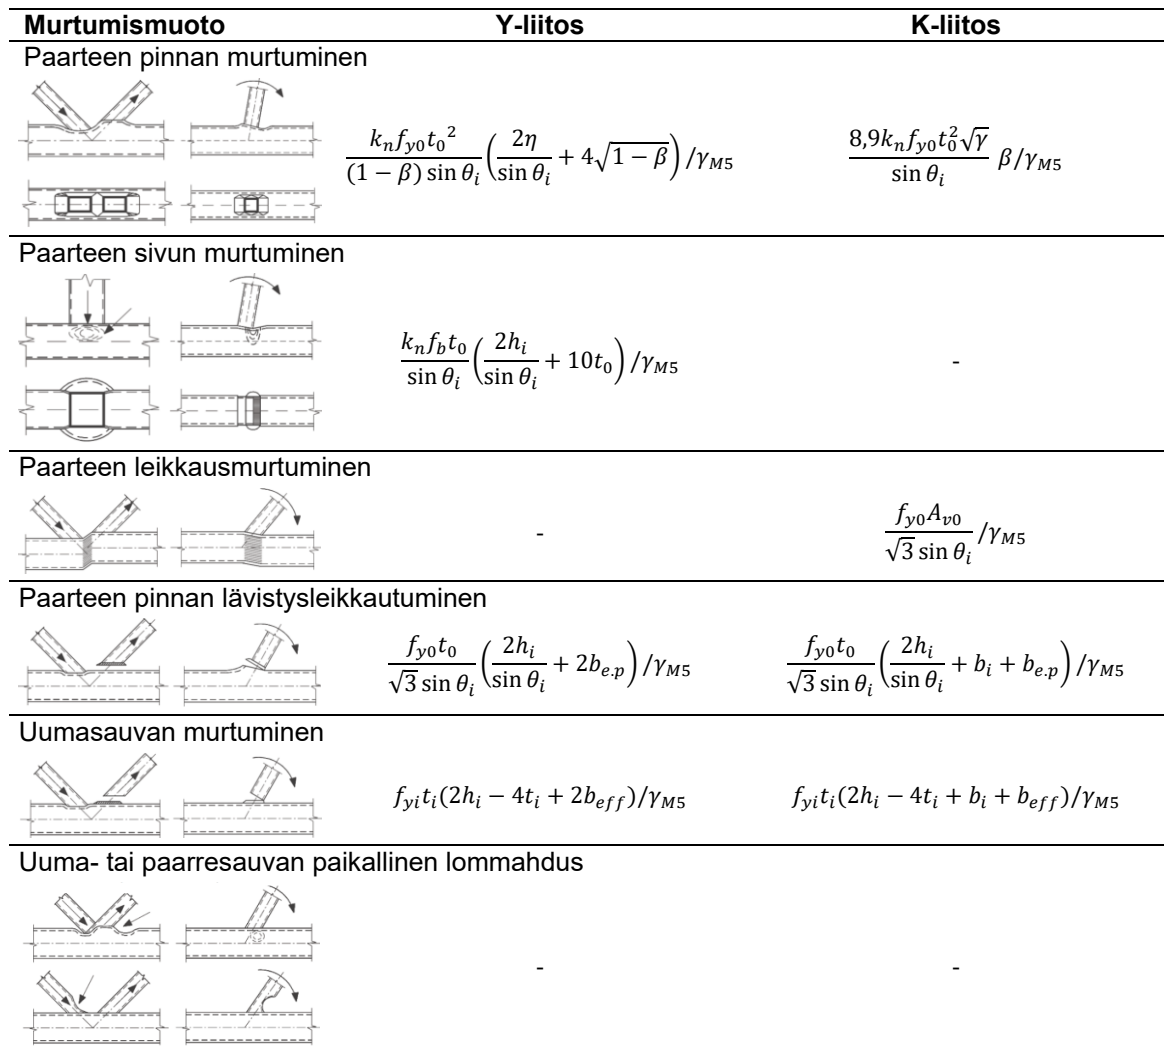 Murtumismuoto Y-liitos K-liitos
Paarteen pinnan murtuminen
\frac{k_n f_{y0} t_0{}^2}{(1-\beta)\sin\theta_i}\left(\frac{2\eta}{\sin\theta_i}+4\sqrt{1-\beta}\right)/\gamma_{M5} \frac{8,9k_n f_{y0} t_0^2\sqrt{\gamma}}{\sin\theta_i}\beta/\gamma_{M5}
Paarteen sivun murtuminen
\frac{k_n f_b t_0}{\sin\theta_i}\left(\frac{2h_i}{\sin\theta_i}+10t_0\right)/\gamma_{M5} -
Paarteen leikkausmurtuminen
- \frac{f_{y0} A_{v0}}{\sqrt{3}\sin\theta_i}/\gamma_{M5}
Paarteen pinnan lävistysleikkautuminen
\frac{f_{y0} t_0}{\sqrt{3}\sin\theta_i}\left(\frac{2h_i}{\sin\theta_i}+2b_{e.p}\right)/\gamma_{M5} \frac{f_{y0} t_0}{\sqrt{3}\sin\theta_i}\left(\frac{2h_i}{\sin\theta_i}+b_i+b_{e.p}\right)/\gamma_{M5}
Uumasauvan murtuminen
f_{yi} t_i(2h_i-4t_i+2b_{eff})/\gamma_{M5} f_{yi} t_i(2h_i-4t_i+b_i+b_{eff})/\gamma_{M5}
Uuma- tai paarresauvan paikallinen lommahdus
- -